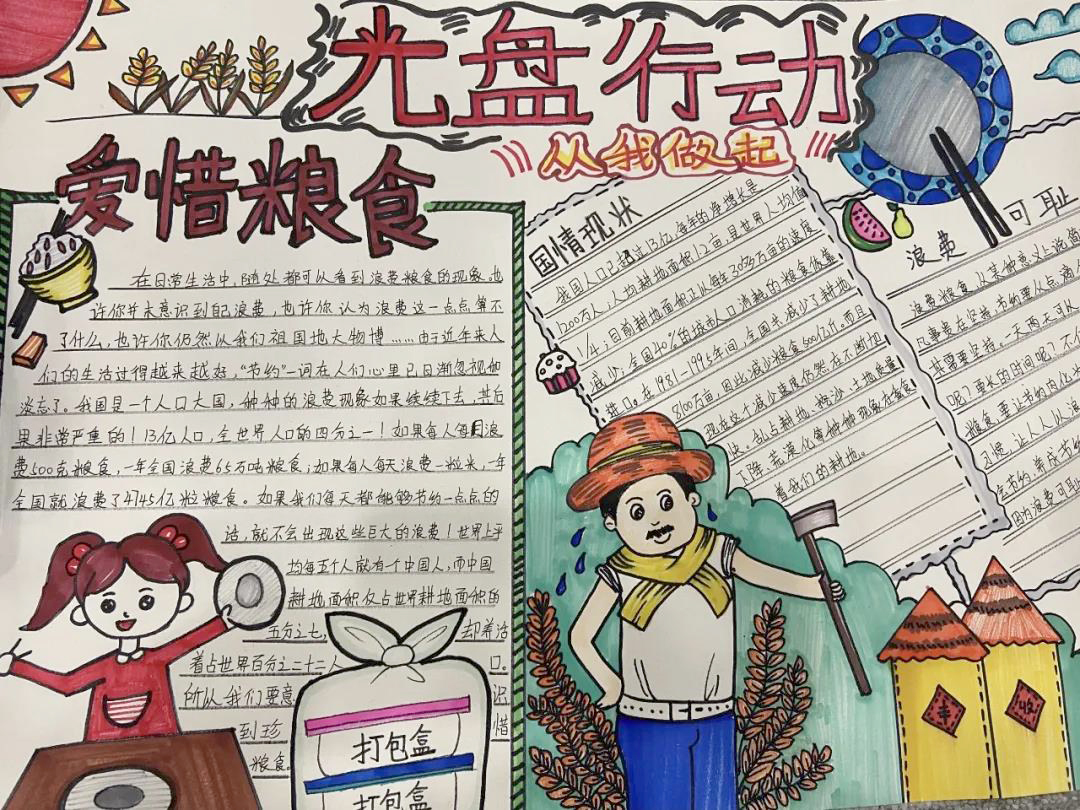 光盘行动
从我做起
爱惜粮食
在日常生活中,随处都可以看到浪费粮食的现象。也
许你并未意识到自己浪费,也许你认为浪费这一点点算不
了什么,也许你仍然认我们祖国地大物博……由于近年来人
们的生活过得越来越好,“节约”一词在人们心里已日渐忽视和
淡忘了。我国是一个人口大国,种种的浪费现象如果继续下去,其后
果非常严重的!13亿人口,全世界人口的四分之一!如果每人每月浪
费500克粮食,一年全国浪费65万吨粮食;如果每人每天浪费一粒米,一年
全国就浪费了4745亿粒粮食。如果我们每天都能够节约一点点的
话,就不会出现这些巨大的浪费!世界上平
均每五个人就有一个中国人,而中国
耕地面积仅占世界耕地面积的
五分之七, 却养活
着占世界百分之二十二人 口。
所以我们要意 识
到珍 惜
粮食。
打包盒
打包盒
国情现状
我国人口已超过13亿,每年的净增长是
1200万人,人均耕地面积1.2亩,是世界人均值
1/4;目前耕地面积正以每年3075万亩的速度
减少;全国40%的城市人口消耗的粮食依靠
进口。在1981-1995年间,全国共减少了耕地
8100万亩,因此减少粮食500亿斤。而且
现在这个减少速度仍然在不断加
快。乱占耕地、挖沙、土地质量
下降、荒漠化等种种现象在蚕食
着我们的耕地。
浪费 可耻
浪费粮食,从某种意义上说简
凡事贵在坚持,节约要从点滴
其需要坚持。一天两天可以
呢?更长的时间呢?不仅
粮食,要让节约内化
习惯,让人人以浪
会节约,养成节约
因为浪费可耻
丰
收